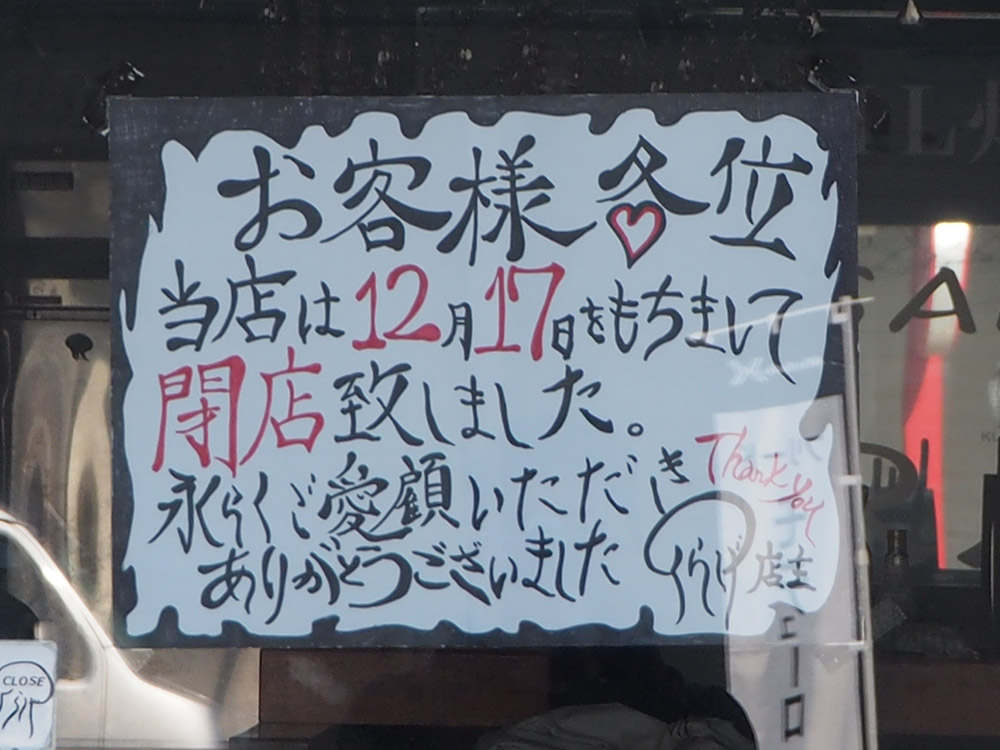 お客様各位
当店は12月17日をもちまして
閉店致しました。
永らくご愛顧いただき
ありがとうございました
Thank you
くらげ店主
CLOSE